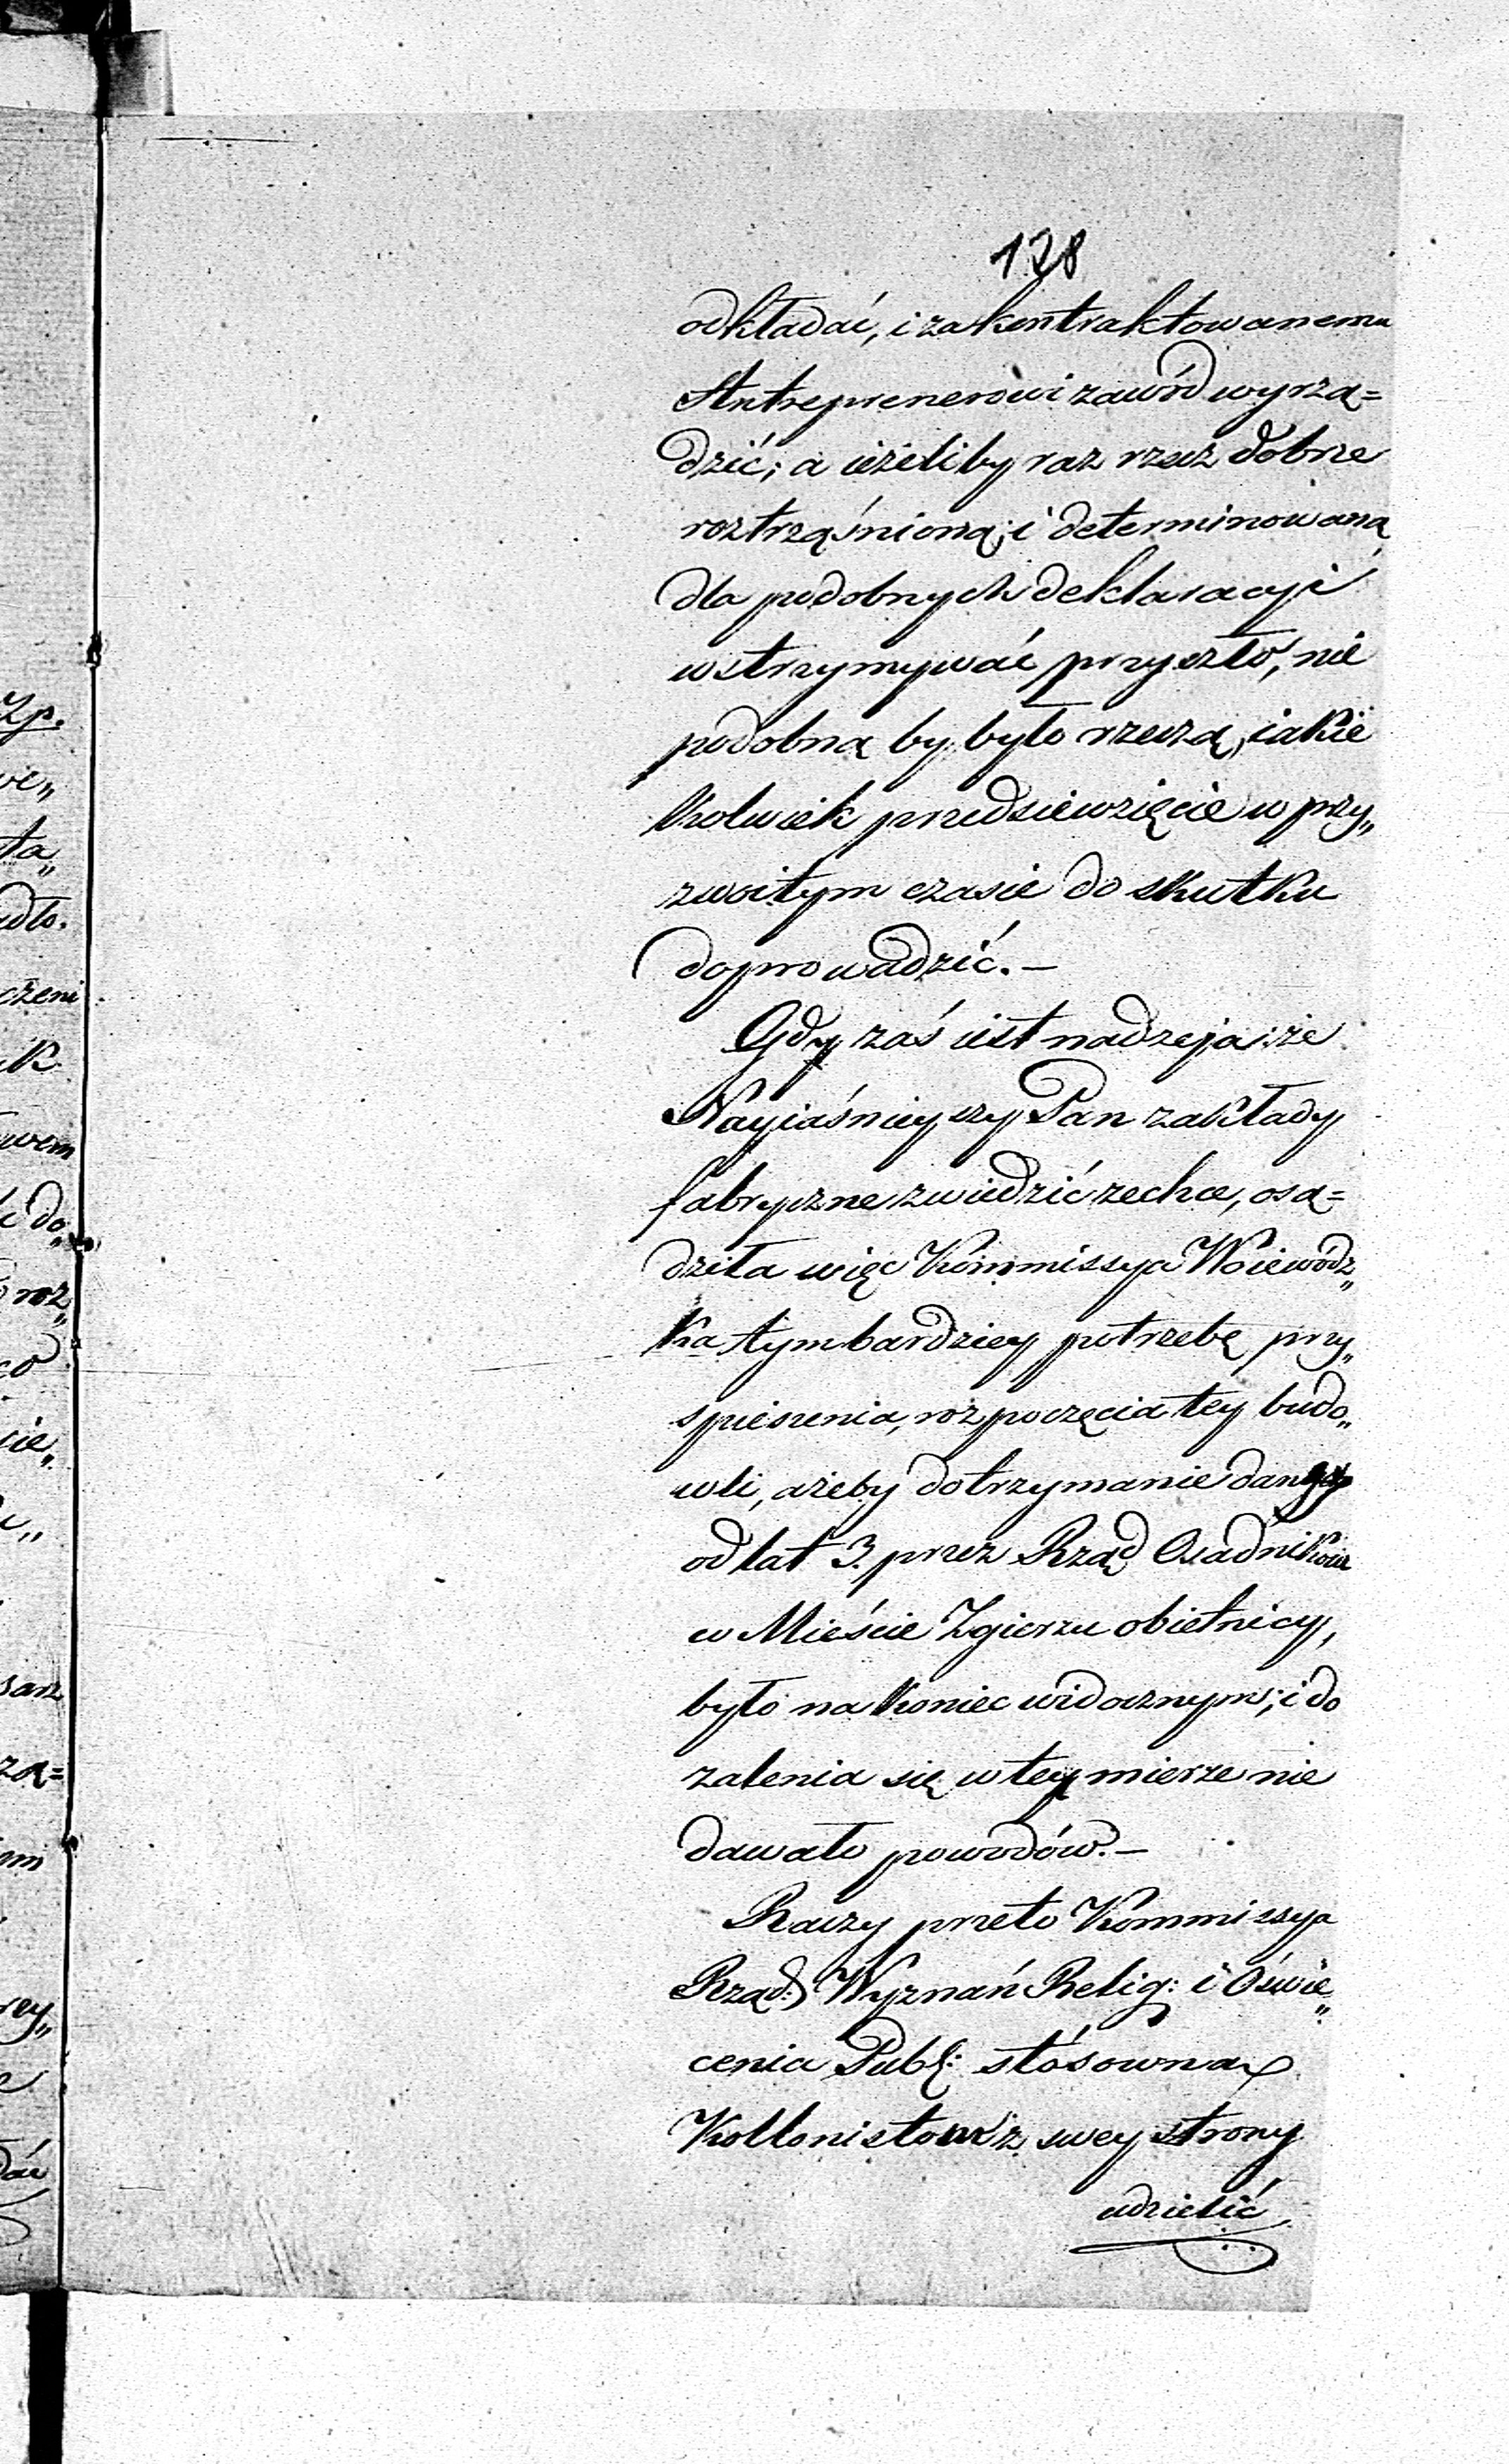 128
odkładać, i zakontraktowanemu
Antreprenerowi zawód wyrzą=
dzić; a ieżeliby raz rzecz dobrze
roztrząśnioną; i determinowaną
dla podobnych deklaracyi
wstrzymywać przyszło, nie
podobną by było rzeczą, iakie
kolwiek przedsiewzięcie w przy„
zwoitym czasie do skutku
doprowadzić.—
Gdy zaś iest nadzeja: że
Nayiaśnieyszy Pan zakłady
fabryczne zwiedzić zechce, osą=
dziła więc Kommissya Woiewódz„
ka tym bardziey potrzebę przy„
spieszenia, rozpoczęcia tey budo„
wli, ażeby dotrzymanie daney
od lat 3. przez Rząd Osadnikom
w Mieście Zgierzu obietnicy,
było nakoniec widocznym; i do
zalenia się w tey mierze nie
dawało powodów.—
Raczy przeto Kommissya
Rząd: Wyznań Relig: i Oświe„
cenia Publ: stósowną
Kollonistom z swey strony
udzielić
Zp.
wie„
ta„
adło.
czeni
ik
twem
i do„
roz„
co
nie„
sarz
zą=
rey„
dać